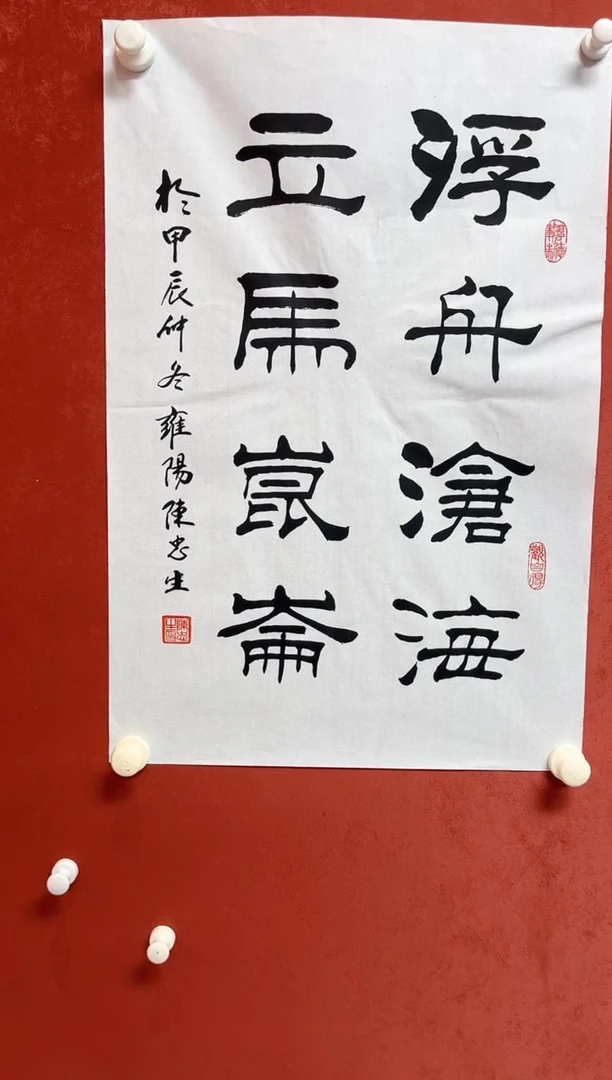 浮舟滄海
立馬崑崙
於甲辰仲冬雍陽陳忠生